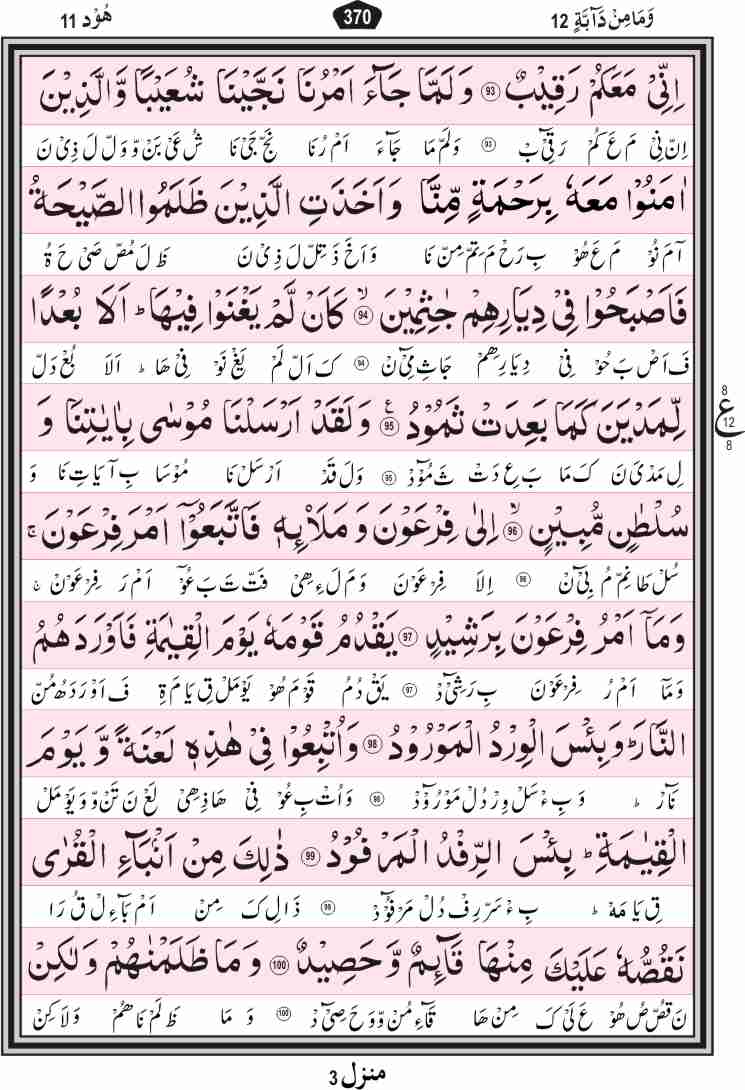 وَمَا مِنْ دَآبَّةٍ 12
370
هُوْد 11
اِنِّیْ مَعَكُمْ رَقِیْبٌ ﴿93﴾ وَ لَمَّا جَآءَ اَمْرُنَا نَجَّیْنَا شُعَیْبًا وَّ الَّذِیْنَ
اِنّ نِیْ مَ عَ كُمْ رَ قِیْٓ بْ ﴿93﴾ وَ لَمّ مَا جَآءَ اَمْ رُ نَا نَجّ جَیْ نَا شُ عَیْ بَنْ وّ وَلّ لَ ذِیْ نَ
اٰمَنُوْا مَعَهٗ بِرَحْمَةٍ مِّنَّا وَ اَخَذَتِ الَّذِیْنَ ظَلَمُوا الصَّیْحَةُ
آ مَ نُوْ مَ عَ هُوْ بِ رَحْ مَ تِمّ مِنّ نَا وَ اَ خَ ذَ تِلّ لَ ذِیْ نَ ظَ لَ مُصّ صَیْ حَ ةُ
فَاَصْبَحُوْا فِیْ دِیَارِهِمْ جٰثِمِیْنَ ﴿94﴾ۙ كَاَنْ لَّمْ یَغْنَوْا فِیْهَا ؕ اَلَا بُعْدًا
فَ اَصْ بَ حُوْ فِیْ دِ یَا رِ هِمْ جَا ثِ مِیْٓ نْ ﴿94﴾ كَ اَلّ لَمْ یَغْ نَوْ فِیْ هَا ؕ اَ لَا بُعْ دَلّ
لِّمَدْیَنَ كَمَا بَعِدَتْ ثَمُوْدُ ﴿95﴾ۧ وَ لَقَدْ اَرْسَلْنَا مُوْسٰی بِاٰیٰتِنَا وَ
8
ع
12
8
لِ مَدْ یَ نَ كَ مَا بَ عِ دَ تْ ثَ مُوْٓ دْ ﴿95﴾ وَ لَ قَدْ اَرْ سَلْ نَا مُوْ سَا بِ آ یَا تِ نَا وَ
سُلْطٰنٍ مُّبِیْنٍ ﴿96﴾ۙ اِلٰی فِرْعَوْنَ وَ مَلَاۡئِهٖ فَاتَّبَعُوْۤا اَمْرَ فِرْعَوْنَ ۚ
سُلْ طَا نِمّ مُ بِیْٓ نْ ﴿96﴾ اِلَا فِرْ عَوْ نَ وَ مَ لَ ءِ هِیْ فَتّ تَ بَ عُوْٓ اَمْ رَ فِرْ عَوْ نْ ۚ
وَ مَاۤ اَمْرُ فِرْعَوْنَ بِرَشِیْدٍ ﴿97﴾ یَقْدُمُ قَوْمَهٗ یَوْمَ الْقِیٰمَةِ فَاَوْرَدَهُمُ
وَ مَآ اَمْ رُ فِرْ عَوْ نَ بِ رَ شِیْٓ دْ ﴿97﴾ یَقْ دُ مُ قَوْ مَ هُوْ یَوْ مَلْ قِ یَا مَ ةِ فَ اَوْ رَ دَ هُ مُنّ
النَّارَ ؕ وَ بِئْسَ الْوِرْدُ الْمَوْرُوْدُ ﴿98﴾ وَ اُتْبِعُوْا فِیْ هٰذِهٖ لَعْنَةً وَّ یَوْمَ
نَآ رْ ؕ وَ بِ ءْ سَلْ وِرْ دُلْ مَوْ رُوْٓ دْ ﴿98﴾ وَ اُتْ بِ عُوْ فِیْ هَا ذِ هِیْ لَعْ نَ تَنْ وّ وَ یَوْ مَلْ
الْقِیٰمَةِ ؕ بِئْسَ الرِّفْدُ الْمَرْفُوْدُ ﴿99﴾ ذٰلِكَ مِنْ اَنْۢبَآءِ الْقُرٰی
قِ یَا مَهْ ؕ بِ ءْ سَرّ رِفْ دُلْ مَرْ فُوْٓ دْ ﴿99﴾ ذَا لِ كَ مِنْ اَمْ بَآءِ لْ قُ رَا
نَقُصُّهٗ عَلَیْكَ مِنْهَا قَآئِمٌ وَّ حَصِیْدٌ ﴿100﴾ وَ مَا ظَلَمْنٰهُمْ وَ لٰكِنْ
نَ قُصّ صُ هُوْ عَ لَیْ كَ مِنْ هَا قَآءِ مُنْ وّ وَ حَ صِیْٓ دْ ﴿100﴾ وَ مَا ظَ لَمْ نَا هُمْ وَ لَا كِنْ
منزل 3